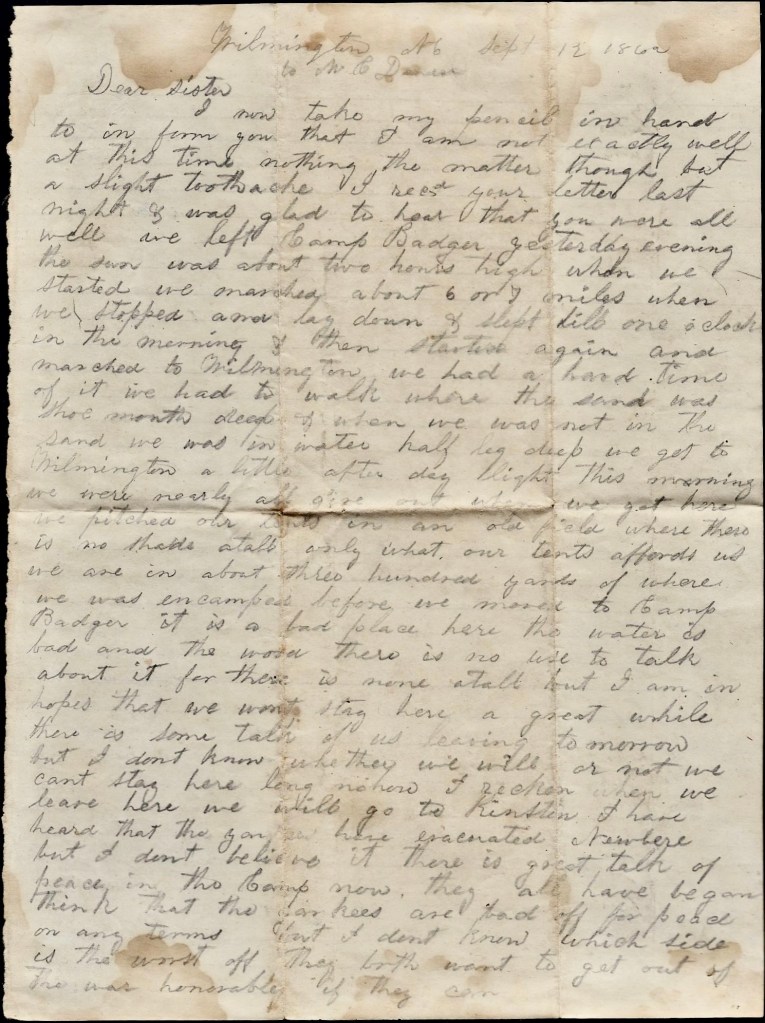 Wilmington NC Sept 12 1862
to M C
Dear Sister
I now take my pencil in hand
to in form you that I am not exactly well
at this time nothing the matter though but
a slight toothache I recd your letter last
night & was glad to hear that you were all
well we left Camp Badger yesterday evening
the sun was about two hours high when we
started we marched about 6 or 7 miles when
we stopped and lay down & slept till one oclock
in the morning & then started again and
marched to Wilmington we had a hard time
of it we had to walk where the sand was
shoe mouth deep & when we was not in the
sand we was in water half leg deep we got to
Wilmington a little after day light this morning
we were nearly all give out when we got here
we pitched our tents in an old field where there
is no shade atall only what our tents affords us
we are in about three hundred yards of where
we was encamped before we moved to Camp
Badger it is a bad place here the water is
bad and the wood there is no use to talk
about it for there is none atall but I am in
hopes that we wont stay here a great while
there is some talk of us leaving tomorrow
but I dont know whether we will or not we
cant stay here long nohow I recken when we
leave here we will go to Kinston I have
heard that the yankees have evacuated Newbern
but I dont believe it there is great talk of
peace in the Camp now. they all have began
think that the yankees are bad off for peace
on any terms but I dont know which side
is the worst off they both want to get out of
the war honorable if they can